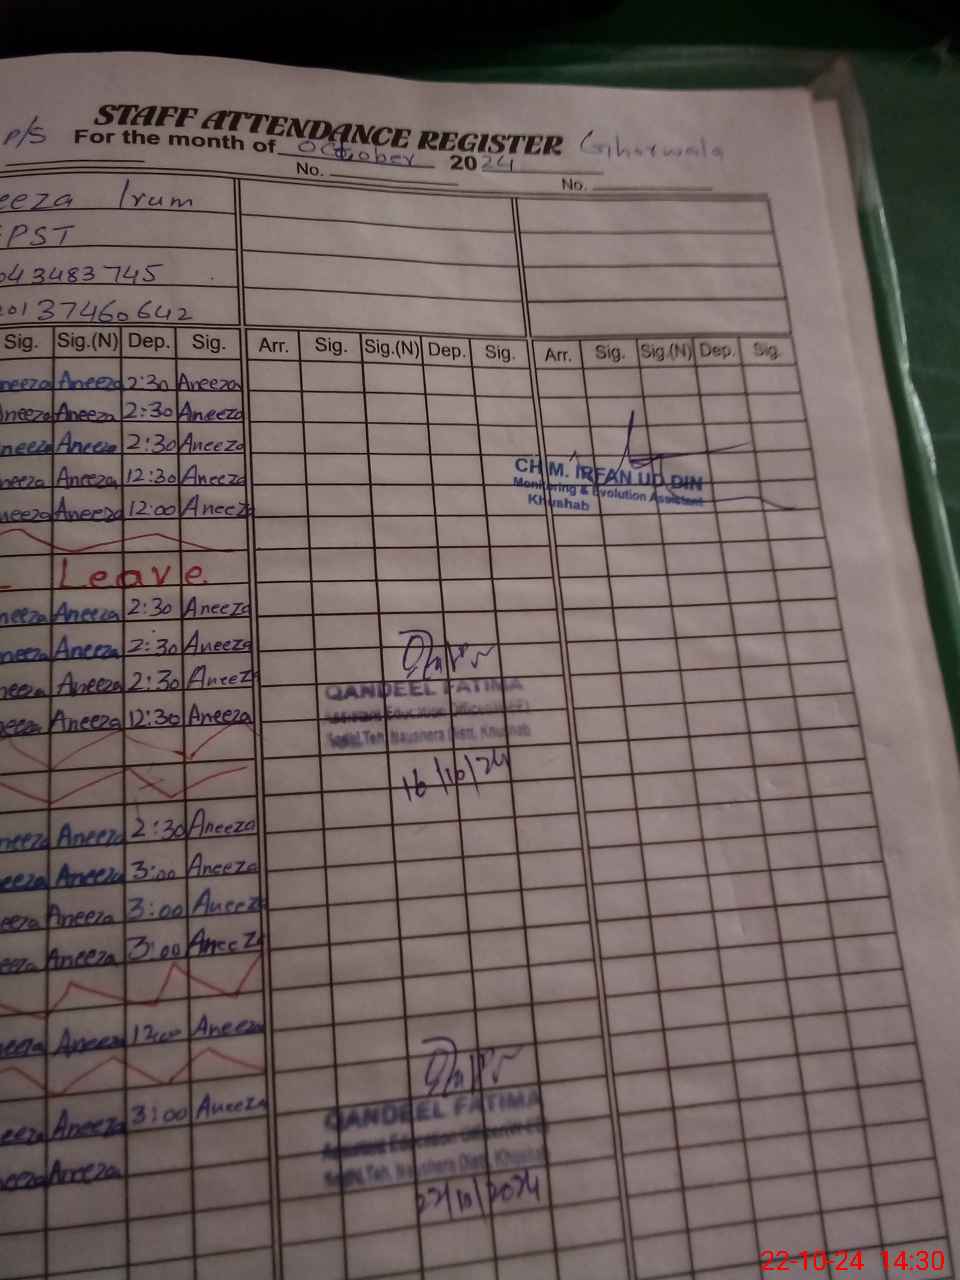 STAFF ATTENDANCE REGISTER
P/S For the month of October 2024 Gharwala
No. No.
eeza Irum
PST
043483745
20137460642
Sig. Sig.(N) Dep. Sig. Arr. Sig. Sig.(N) Dep. Sig. Arr. Sig. Sig.(N) Dep. Sig.
neeza Aneeza 2:30 Aneeza
Aneeza Aneeza 2:30 Aneeza
neeza Aneeza 2:30 Aneeza
neeza Aneeza 12:30 Aneeza
neeza Aneeza 12:00 Aneeza
CH M. IRFAN UD DIN
Monitoring & Evolution Assistant
Khushab
Leave
neeza Aneeza 2:30 Aneeza
neeza Aneeza 2:30 Aneeza
neeza Aneeza 2:30 Aneeza
neeza Aneeza 12:30 Aneeza
QANDEEL FATIMA
Assistant Education Officer
Teh. Naushera Distt. Khushab
16/10/24
neeza Aneeza 2:30 Aneeza
eeza Aneeza 3:00 Aneeza
eeza Aneeza 3:00 Aneeza
eeza Aneeza 3:00 Aneeza
neeza Aneeza 12:00 Aneeza
eeza Aneeza 3:00 Aneeza
neeza Aneeza
QANDEEL FATIMA
Assistant Education Officer
Teh. Naushera Distt. Khushab
22/10/2024
22-10-24 14:30